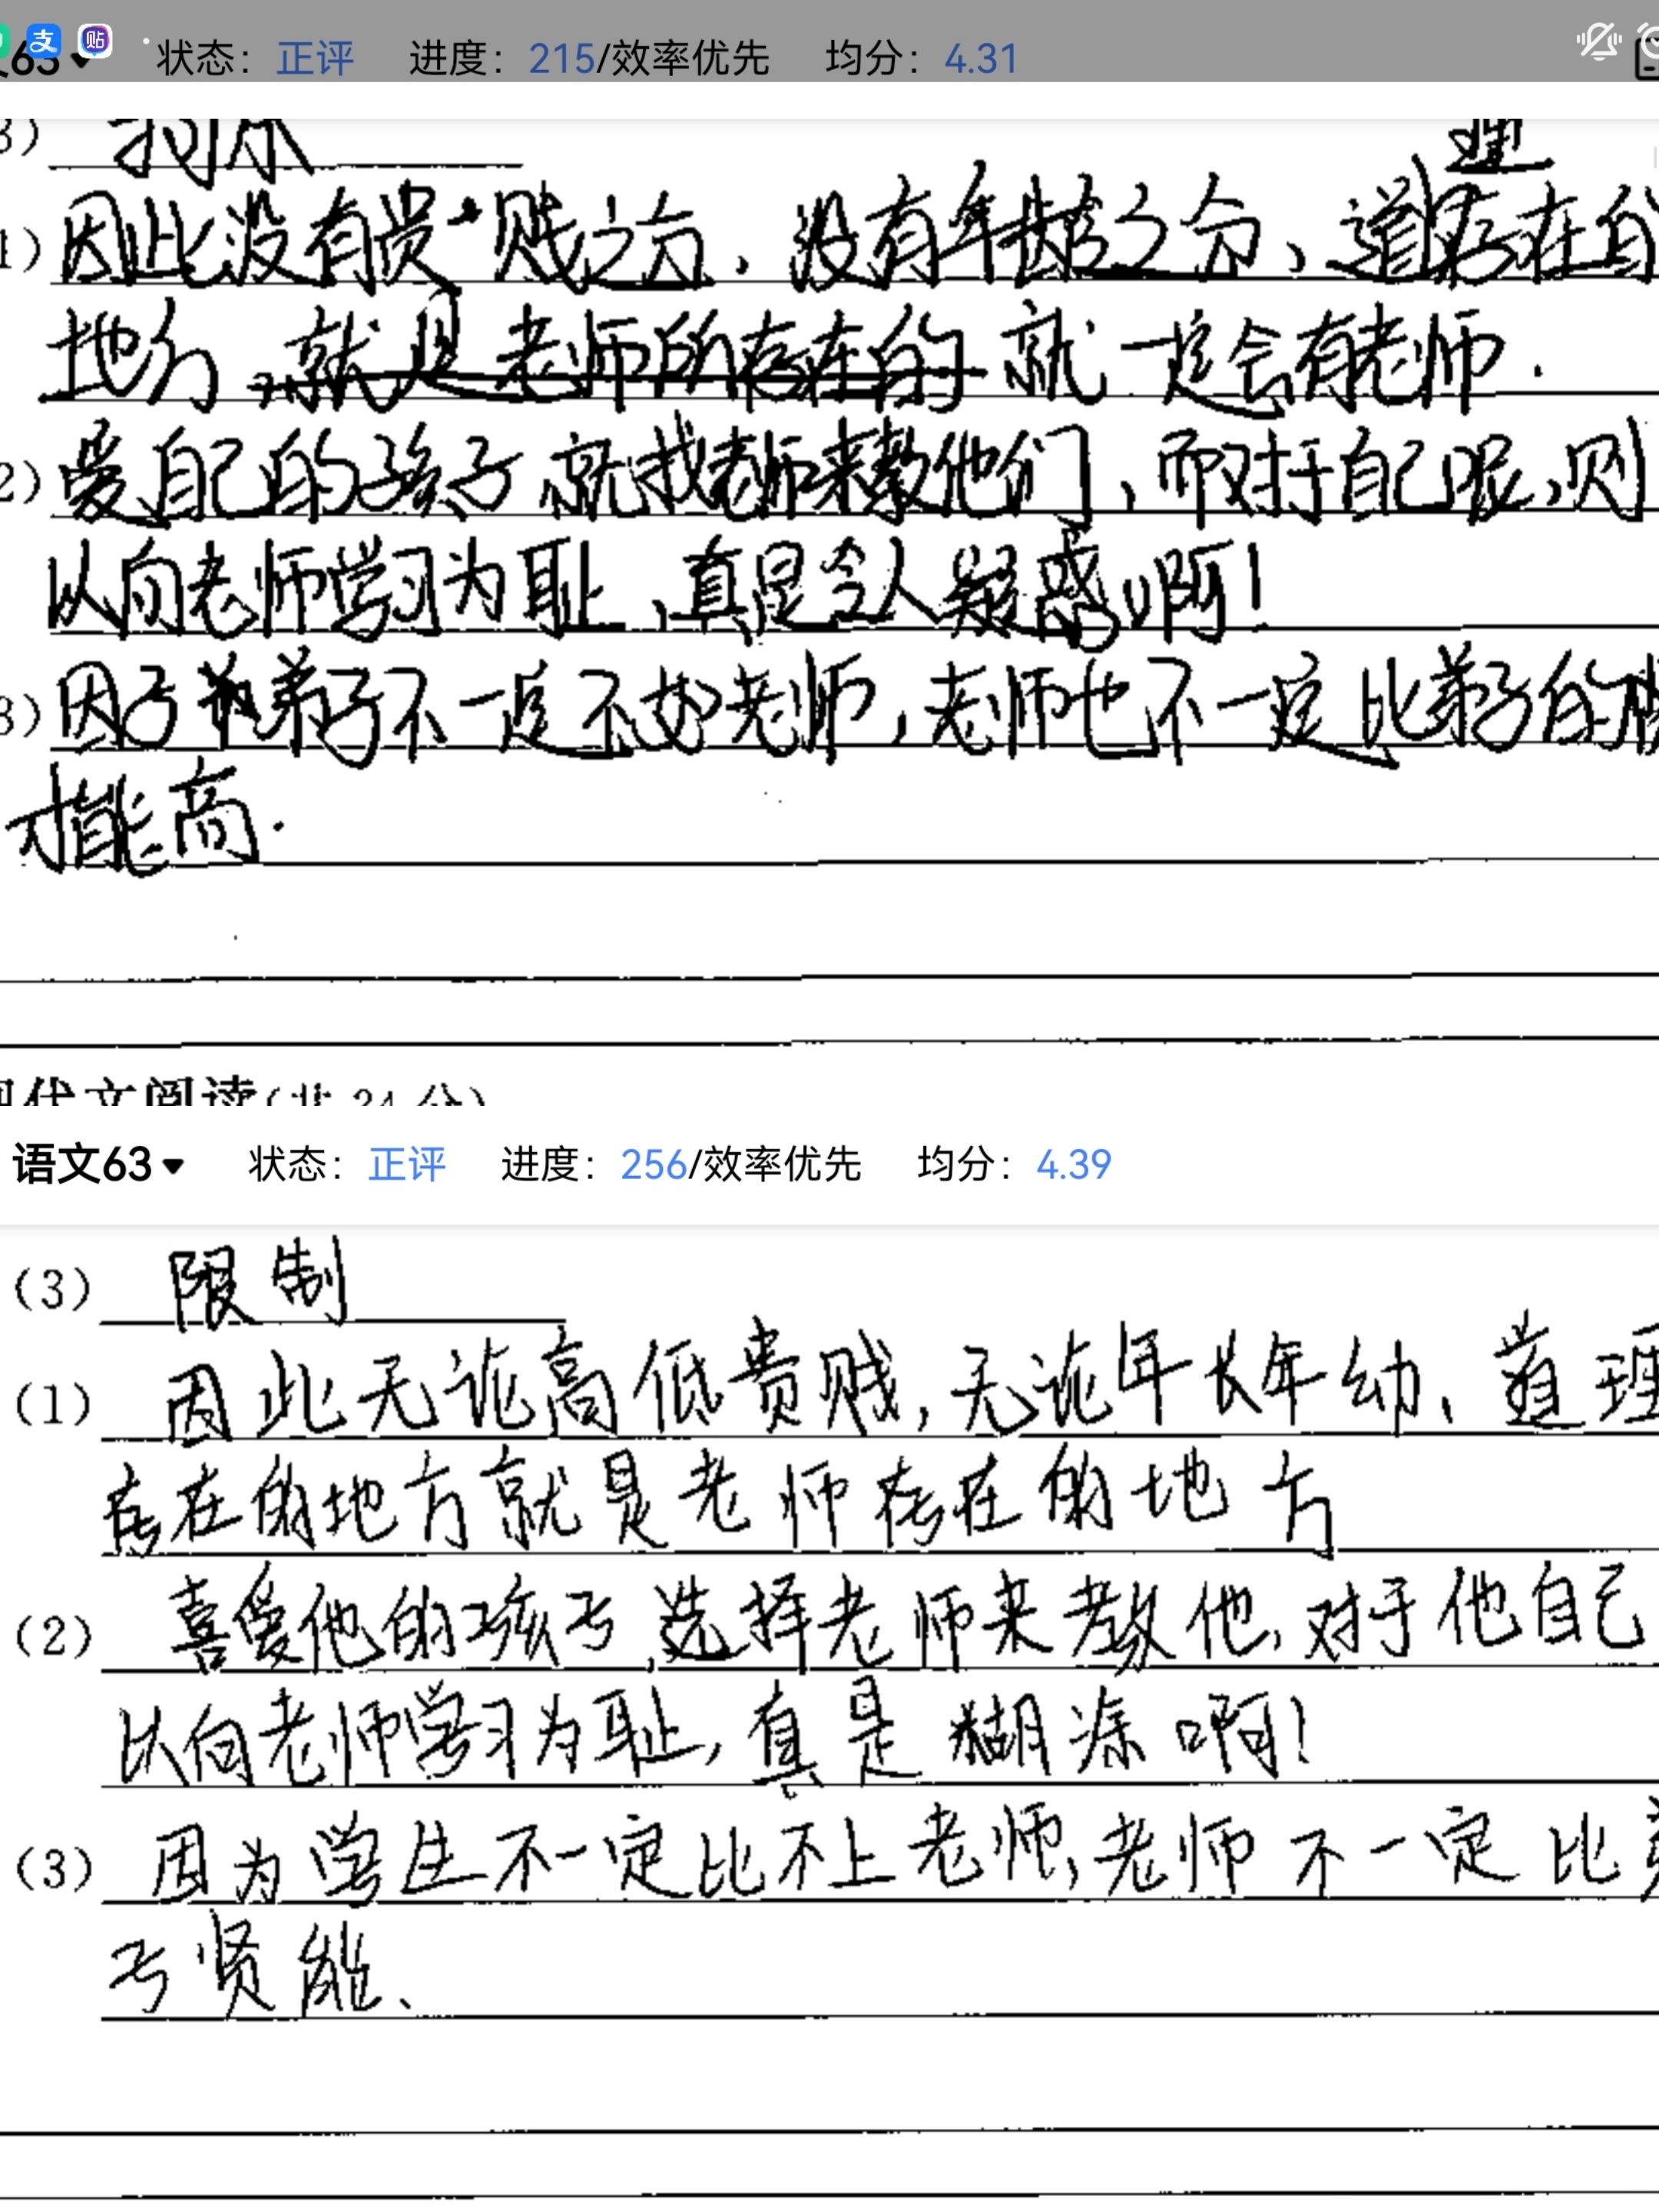 支 贴
63 状态：正评 进度：215/效率优先 均分：4.31
3)
理
1) 因此没有贵贱之分，没有年龄之分、道存在的
地方 就是老师所存在的 就一定会有老师.
2) 爱自己的孩子就找老师来教他们，而对于自己呢，则
以向老师学习为耻，真是令人疑惑啊！
3) 因子弟子不一定不如老师，老师也不一定比弟子的
才能高.
代文阅读(共 24 分)
语文63 状态：正评 进度：256/效率优先 均分：4.39
(3) 限制
(1) 因此无论高低贵贱，无论年长年幼、道理
存在的地方就是老师存在的地方
(2) 喜爱他的孩子，选择老师来教他，对于他自己
以向老师学习为耻，真是糊涂啊！
(3) 因为学生不一定比不上老师，老师不一定比
子贤能、